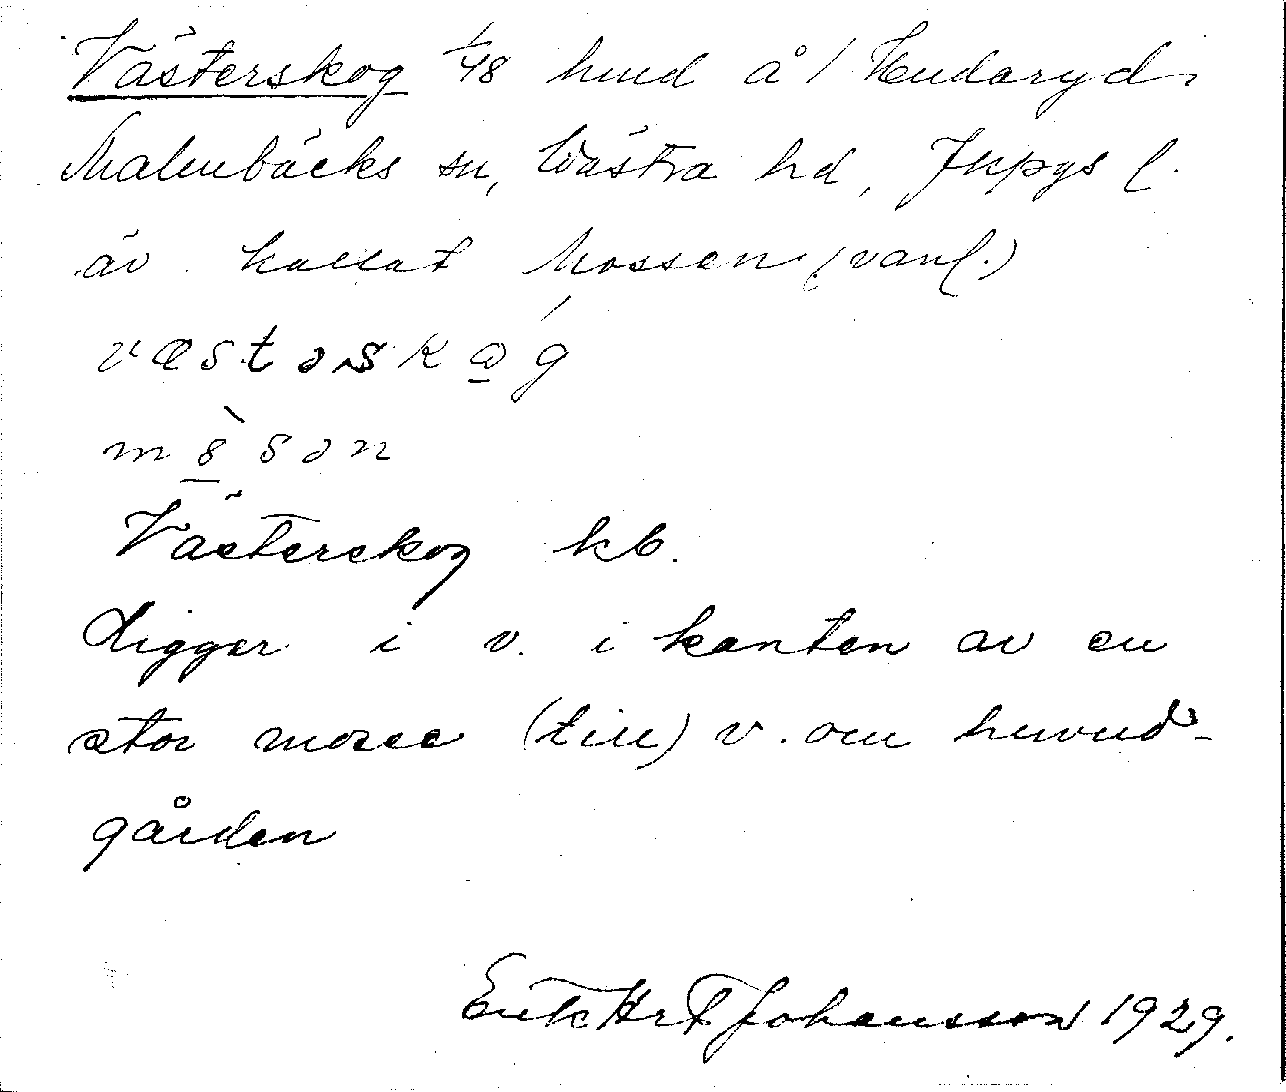 Västerskog 1/48 hmd å 1 Hudaryd,
Malmbäcks sn, Västra hd, Jkpgs l.
äv. kallat Mossen (vanl.)
væstəskog
mosən
Västerskog kb.
Ligger i v. i kanten av en
stor mosse (till) v. om huvud-
gården
Erik Johansson 1929.